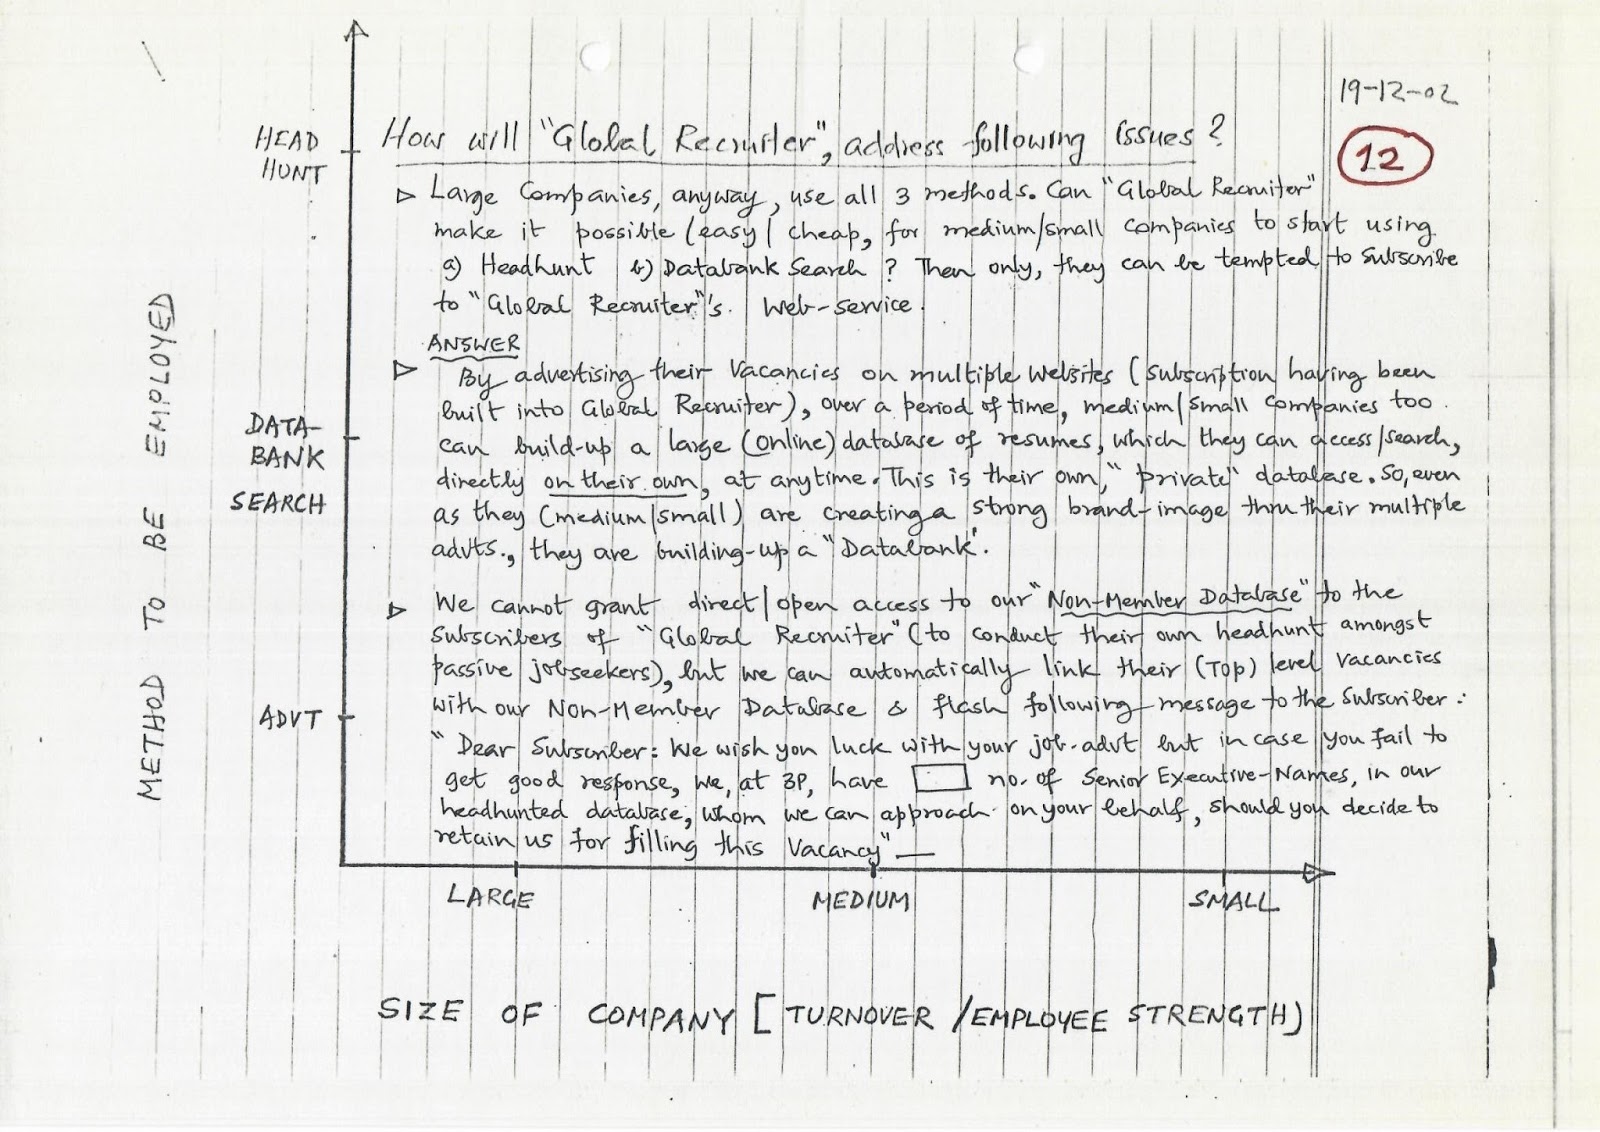 19-12-02
12
How will "Global Recruiter", address following issues?
▷ Large Companies, anyway, use all 3 methods. Can "Global Recruiter"
make it possible/easy/cheap, for medium/small companies to start using
a) Headhunt b) Databank Search ? Then only, they can be tempted to subscribe
to "Global Recruiter"'s. Web-service.
ANSWER
▷ By advertising their Vacancies on multiple websites (subscription having been
built into Global Recruiter), over a period of time, medium/small companies too
can build-up a large (online) database of resumes, which they can access/search,
directly on their own, at anytime. This is their own, "private" database. So, even
as they (medium/small) are creating a strong brand-image thru their multiple
advts., they are building-up a "Databank".
▷ We cannot grant direct/open access to our "Non-Member Database" to the
subscribers of "Global Recruiter" (to conduct their own headhunt amongst
passive jobseekers), but we can automatically link their (Top) level vacancies
with our Non-Member Database & flash following message to the Subscriber:
"Dear Subscriber: We wish you luck with your job-advt but in case you fail to
get good response, we, at 3P, have no. of Senior Executive-Names, in our
headhunted database, whom we can approach on your behalf, should you decide to
retain us for filling this Vacancy" —
HEAD
HUNT
DATA-
BANK
SEARCH
ADVT
METHOD TO BE EMPLOYED
LARGE MEDIUM SMALL
SIZE OF COMPANY [TURNOVER /EMPLOYEE STRENGTH)